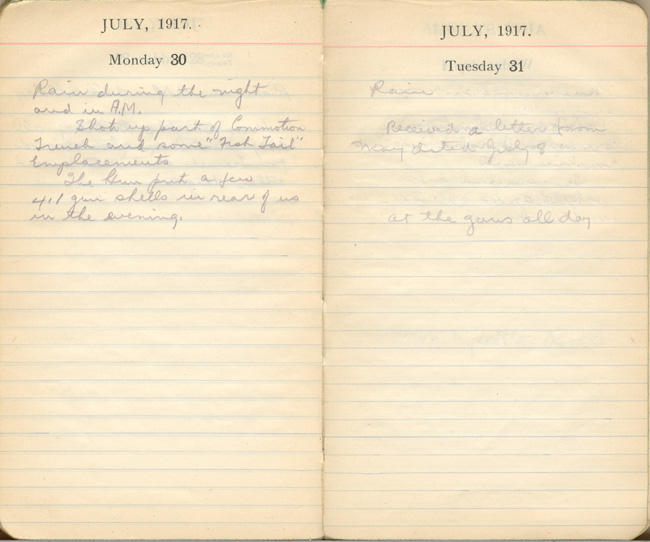 JULY, 1917.
Monday 30
Rain during the night
and in A.M.
Shot up part of Commotion
Trench and some "Fish Tail"
Emplacements
The Hun put a few
4.1 gun shells in rear of us
in the evening.
JULY, 1917.
Tuesday 31
Rain
Received a letter from
May dated July 8
at the guns all day